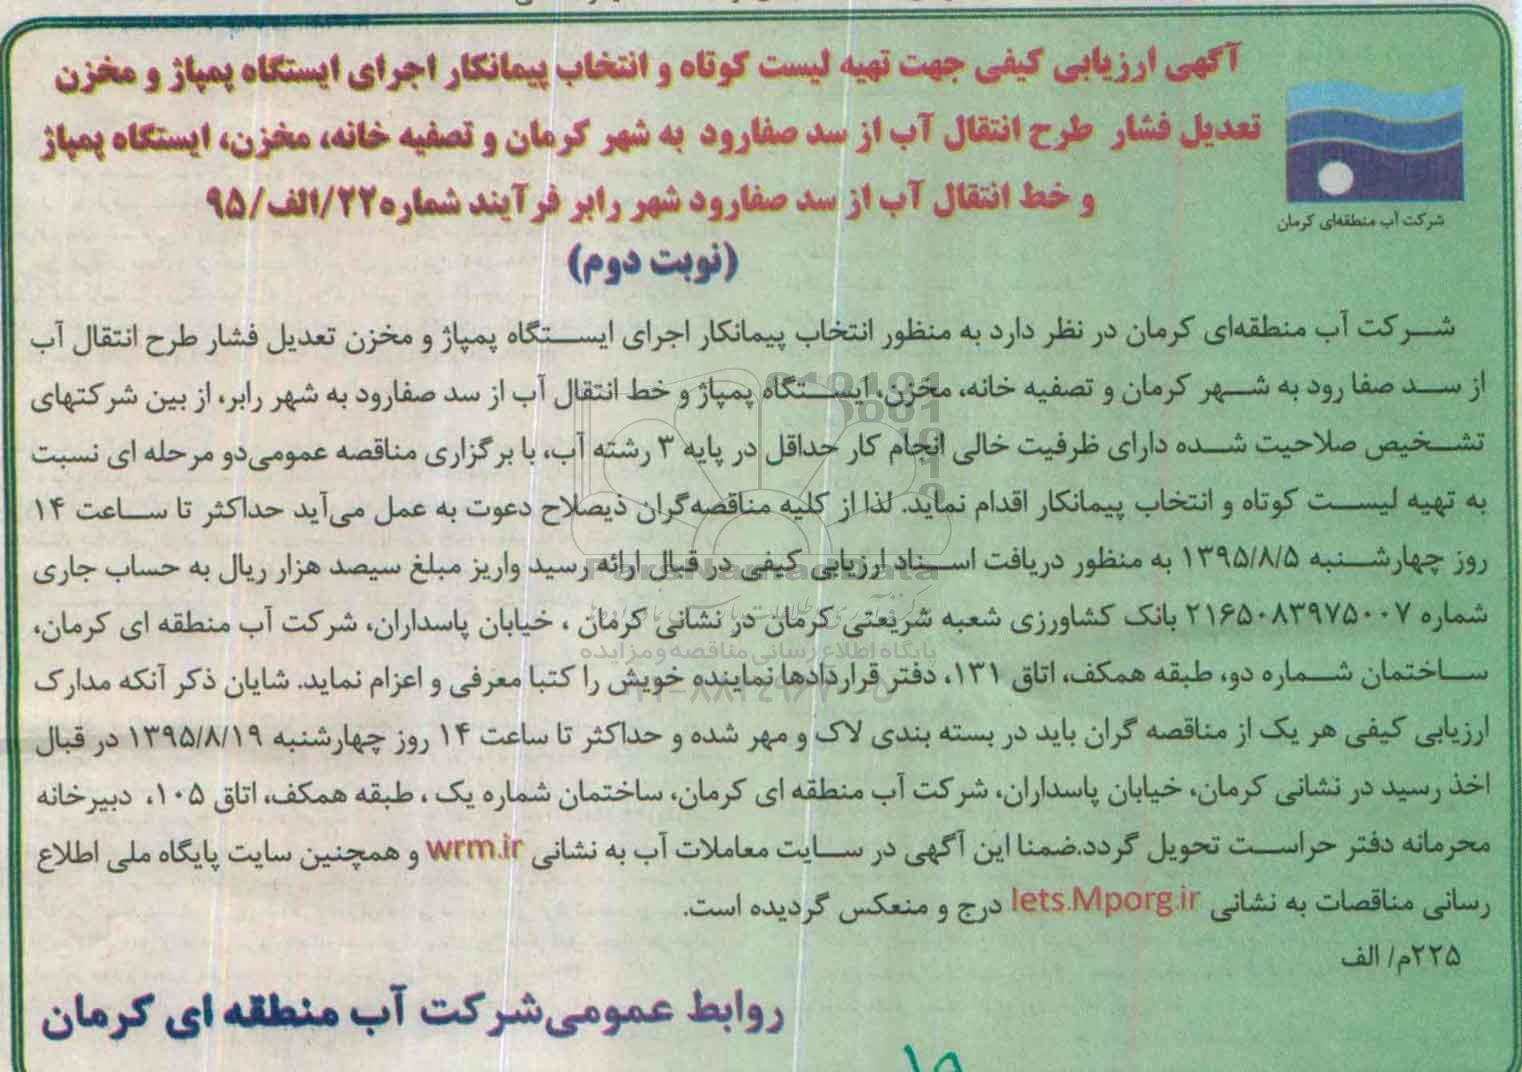 آگهی ارزیابی کیفی جهت تهیه لیست کوتاه و انتخاب پیمانکار اجرای ایستگاه پمپاژ و مخزن
تعدیل فشار طرح انتقال آب از سد صفارود به شهر کرمان و تصفیه خانه، مخزن، ایستگاه پمپاژ
و خط انتقال آب از سد صفارود شهر رابر فرآیند شماره۲۲/الف/۹۵
شرکت آب منطقه‌ای کرمان
(نوبت دوم)
شرکت آب منطقه‌ای کرمان در نظر دارد به منظور انتخاب پیمانکار اجرای ایستگاه پمپاژ و مخزن تعدیل فشار طرح انتقال آب
از سد صفا رود به شهر کرمان و تصفیه خانه، مخزن، ایستگاه پمپاژ و خط انتقال آب از سد صفارود به شهر رابر، از بین شرکتهای
تشخیص صلاحیت شده دارای ظرفیت خالی انجام کار حداقل در پایه ۳ رشته آب، با برگزاری مناقصه عمومی‌دو مرحله ای نسبت
به تهیه لیست کوتاه و انتخاب پیمانکار اقدام نماید. لذا از کلیه مناقصه‌گران ذیصلاح دعوت به عمل می‌آید حداکثر تا ساعت ۱۴
روز چهارشنبه ۱۳۹۵/۸/۵ به منظور دریافت اسناد ارزیابی کیفی در قبال ارائه رسید واریز مبلغ سیصد هزار ریال به حساب جاری
شماره ۲۱۶۵۰۸۳۹۷۵۰۰۷ بانک کشاورزی شعبه شریعتی کرمان در نشانی کرمان ، خیابان پاسداران، شرکت آب منطقه ای کرمان،
ساختمان شماره دو، طبقه همکف، اتاق ۱۳۱، دفتر قراردادها نماینده خویش را کتبا معرفی و اعزام نماید. شایان ذکر آنکه مدارک
ارزیابی کیفی هر یک از مناقصه گران باید در بسته بندی لاک و مهر شده و حداکثر تا ساعت ۱۴ روز چهارشنبه ۱۳۹۵/۸/۱۹ در قبال
اخذ رسید در نشانی کرمان، خیابان پاسداران، شرکت آب منطقه ای کرمان، ساختمان شماره یک ، طبقه همکف، اتاق ۱۰۵، دبیرخانه
محرمانه دفتر حراست تحویل گردد.ضمنا این آگهی در سایت معاملات آب به نشانی wrm.ir و همچنین سایت پایگاه ملی اطلاع
رسانی مناقصات به نشانی Iets.Mporg.ir درج و منعکس گردیده است.
۲۲۵م/ الف
روابط عمومی‌شرکت آب منطقه ای کرمان
ParsNamadData
پایگاه اطلاع رسانی مناقصه و مزایده
۱۹